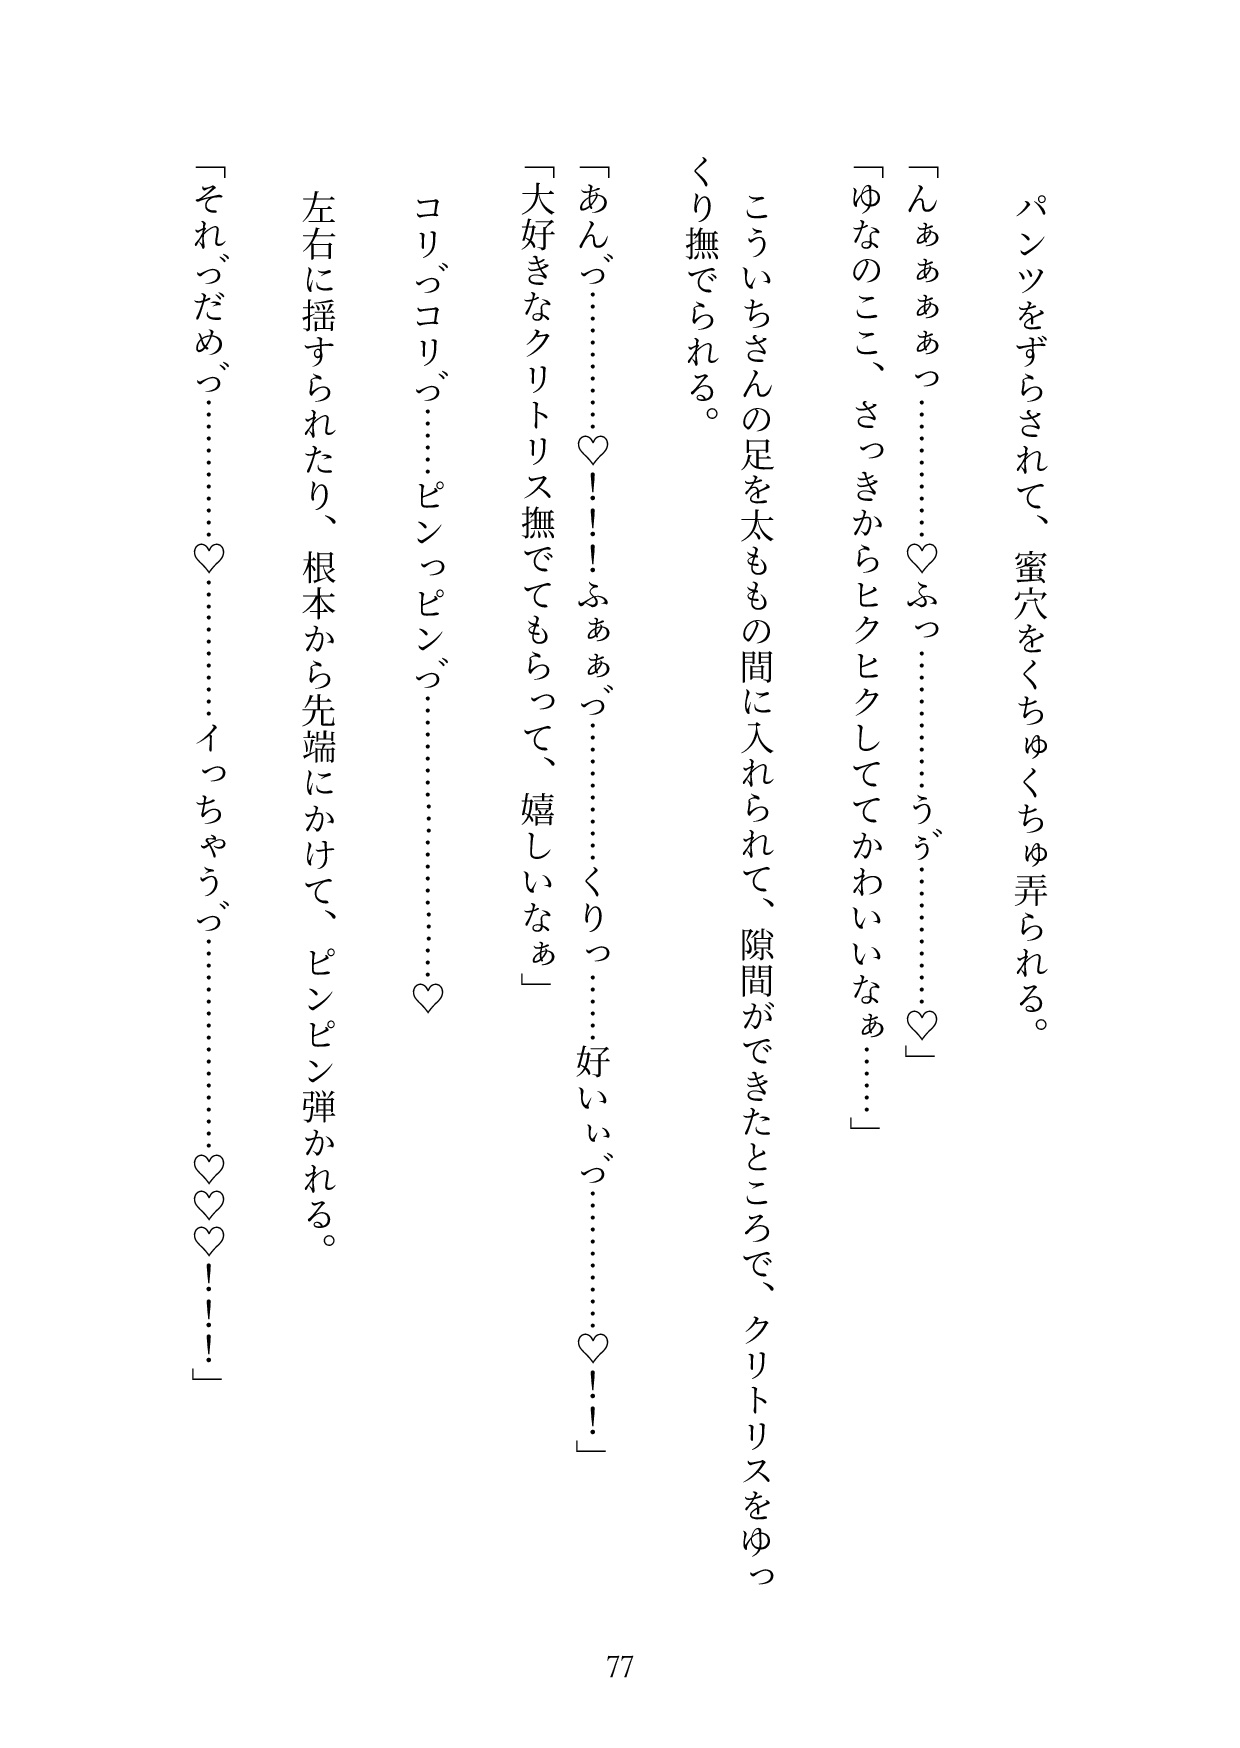 パンツをずらされて、蜜穴をくちゅくちゅ弄られる。
「んぁぁぁぁっ…………♡ふっ…………うゔ…………♡」
「ゆなのここ、さっきからヒクヒクしててかわいいなぁ……」
こういちさんの足を太ももの間に入れられて、隙間ができたところで、クリトリスをゆっ
くり撫でられる。
「あんっ゛…………♡！！！ふぁぁっ゛…………くりっ……好いぃっ゛…………♡！！」
「大好きなクリトリス撫でてもらって、嬉しいなぁ」
コリっ゛コリっ゛……ピンっピンっ゛……………………♡
左右に揺すられたり、根本から先端にかけて、ピンピン弾かれる。
「それっ゛だめっ゛…………♡…………イっちゃうっ゛………………♡♡♡！！！」
77